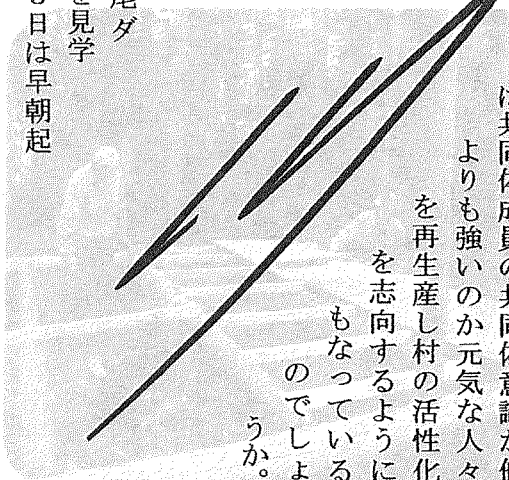 は共同体成員の共同体意識が他
よりも強いのか元気な人々
を再生産し村の活性化
を志向するように
もなっている
のでしょ
うか。
尾ダ
を見学
日は早朝起